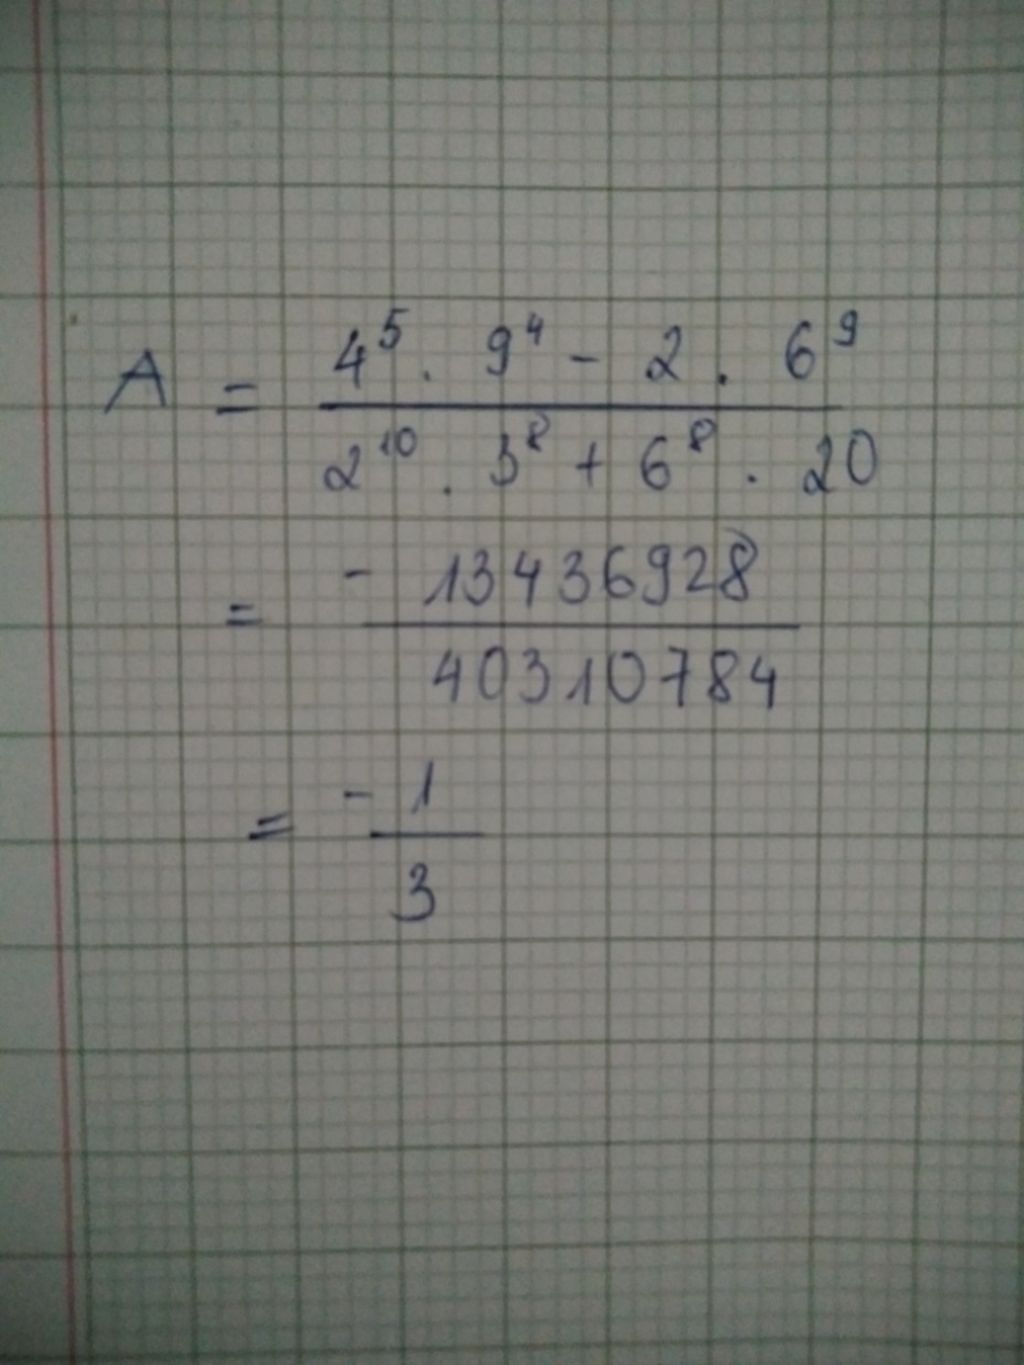 A = \frac{4^5 . 9^4 - 2 . 6^9}{2^{10} . 3^8 + 6^8 . 20}
= \frac{- 13436928}{40310784}
= \frac{- 1}{3}